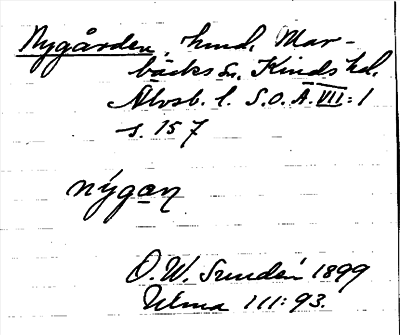 Nygården, hmd, Mar-
bäcks sn. Kinds hd.
Älvsb. l. S.O.Ä. VII:1
s. 157
nýgan
O. W. Sundén 1899
Ulma 111:93.